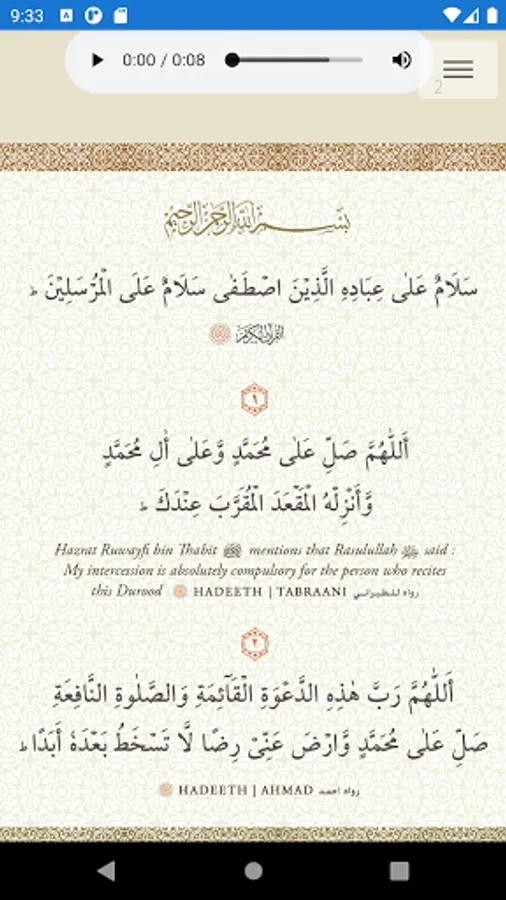 9:33
0:00 / 0:08
2
بسم الله الرحمن الرحيم
سَلَامٌ عَلٰى عِبَادِهِ الَّذِيْنَ اصْطَفٰى سَلَامٌ عَلَى الْمُرْسَلِيْنَ ؕ
القرآن الكريم
١
أَللّٰهُمَّ صَلِّ عَلٰى مُحَمَّدٍ وَّعَلٰى أٰلِ مُحَمَّدٍ
وَّأَنْزِلْهُ الْمَقْعَدَ الْمُقَرَّبَ عِنْدَكَ ؕ
Hazrat Ruwayfi bin Thabit mentions that Rasulullah ﷺ said :
My intercession is absolutely compulsory for the person who recites
this Durood HADEETH | TABRAANI رواه للطبراني
٢
أَللّٰهُمَّ رَبَّ هٰذِهِ الدَّعْوَةِ الْقَآئِمَةِ وَالصَّلٰوةِ النَّافِعَةِ
صَلِّ عَلٰى مُحَمَّدٍ وَّارْضَ عَنِّىْ رِضًا لَّا تَسْخَطُ بَعْدَهٗ أَبَدًا ؕ
HADEETH | AHMAD رواه احمد